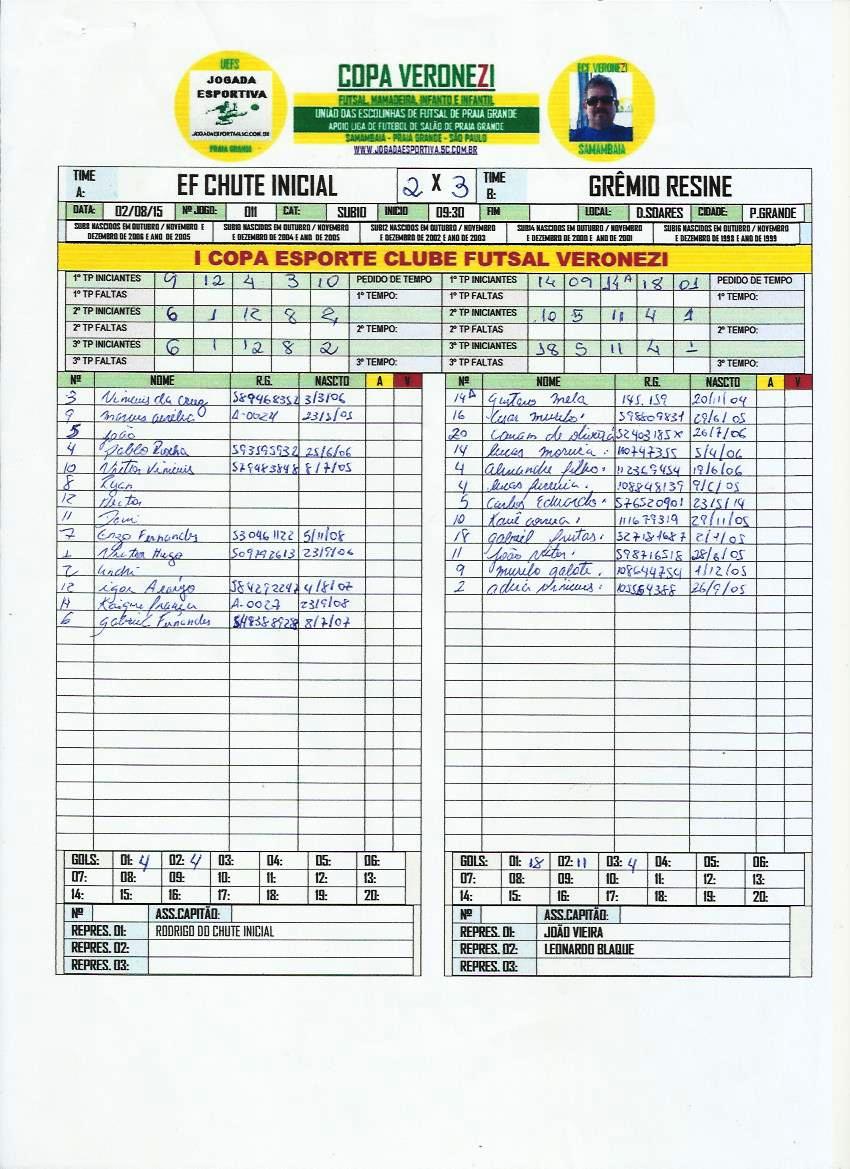 UEFS
JOGADA
ESPORTIVA
JOGADAESPORTIVA.SC.COM.BR
PRAIA GRANDE
COPA VERONEZI
FUTSAL, MAMADEIRA, INFANTO E INFANTIL
UNIÃO DAS ESCOLINHAS DE FUTSAL DE PRAIA GRANDE
APOIO LIGA DE FUTEBOL DE SALÃO DE PRAIA GRANDE
SAMAMBAIA - PRAIA GRANDE - SÃO PAULO
WWW.JOGADAESPORTIVA.SC.COM.BR
ECF VERONEZI
SAMAMBAIA
TIME A: EF CHUTE INICIAL 2 X 3 TIME B: GRÊMIO RESINE
DATA: 02/08/15 Nº JOGO: 011 CAT: SUB10 INICIO 09:30 FIM LOCAL: D.SOARES CIDADE: P.GRANDE
SUB8 NASCIDOS EM OUTUBRO / NOVEMBRO E DEZEMBRO DE 2006 E ANO DE 2005
SUB10 NASCIDOS EM OUTUBRO / NOVEMBRO E DEZEMBRO DE 2004 E ANO DE 2005
SUB12 NASCIDOS EM OUTUBRO / NOVEMBRO E DEZEMBRO DE 2002 E ANO DE 2003
SUB14 NASCIDOS EM OUTUBRO / NOVEMBRO E DEZEMBRO DE 2000 E ANO DE 2001
SUB16 NASCIDOS EM OUTUBRO / NOVEMBRO E DEZEMBRO DE 1998 E ANO DE 1999
I COPA ESPORTE CLUBE FUTSAL VERONEZI
1º TP INICIANTES 9 12 4 3 10 PEDIDO DE TEMPO
1º TP FALTAS 1º TEMPO:
2º TP INICIANTES 6 1 12 8 2
2º TP FALTAS 2º TEMPO:
3º TP INICIANTES 6 1 12 8 2
3º TP FALTAS 3º TEMPO:
1º TP INICIANTES 14 09 14A 18 01 PEDIDO DE TEMPO
1º TP FALTAS 1º TEMPO:
2º TP INICIANTES 10 5 11 4 1
2º TP FALTAS 2º TEMPO:
3º TP INICIANTES 18 5 11 4 1
3º TP FALTAS 3º TEMPO:
Nº NOME R.G. NASCTO A V
3 Vinicius da Cruz 589468352 3/3/06
9 marcus aurelio A-0024 23/5/05
5 João
4 Pablo Rocha 593595932 25/6/06
10 Victor Vinicius 579483848 8/7/05
8 Ryan
12 Hector
11 Javi
7 Enzo Fernandes 530461122 5/11/08
1 Victor Hugo 509792613 23/9/06
2 André
12 igor Araujo 584292247 4/8/07
Kaique A-0027 23/9/08
6 gabriel Fernandes 548388928 8/7/07
Nº NOME R.G. NASCTO A V
14A Gustavo Mela 145.159 20/11/04
16 murilo 598809831 29/6/05
20 de oliveira 52403185x 26/7/06
14 lucas moreira 110747355 5/4/06
4 alexandre filho 112369454 19/6/06
4 lucas 108848139 9/6/05
5 Carlos Eduardo 576520901 23/5/14
10 Kauê correa 111679319 29/11/05
18 gabriel freitas 527187687
11 João Vitor 598716518 28/6/05
9 murilo galote 108644754 1/12/05
2 vinicius 26/9/05
GOLS: 01: 4 02: 4 03: 04: 05: 06:
07: 08: 09: 10: 11: 12: 13:
14: 15: 16: 17: 18: 19: 20:
Nº ASS.CAPITÃO:
REPRES. 01: RODRIGO DO CHUTE INICIAL
REPRES. 02:
REPRES. 03:
GOLS: 01: 18 02: 11 03: 4 04: 05: 06:
07: 08: 09: 10: 11: 12: 13:
14: 15: 16: 17: 18: 19: 20:
Nº ASS.CAPITÃO:
REPRES. 01: JOÃO VIEIRA
REPRES. 02: LEONARDO BLAQUE
REPRES. 03: